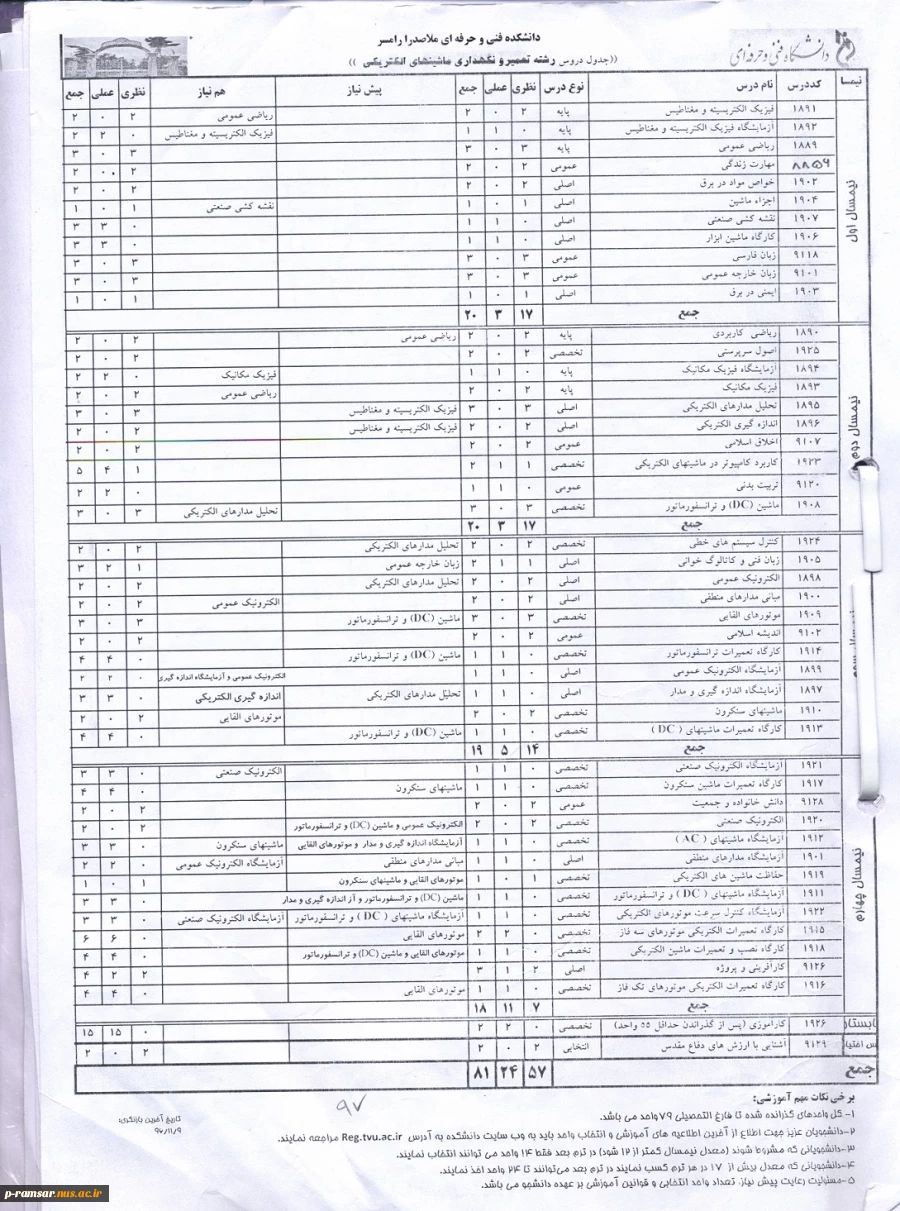 دانشگاه فنی و حرفه ای
دانشکده فنی و حرفه ای ملاصدرا رامسر
((جدول دروس رشته تعمیر و نگهداری ماشینهای الکتریکی ))
نیمسا کددرس نام درس نوع درس نظری عملی جمع پیش نیاز هم نیاز نظری عملی جمع
نیمسال اول
۱۸۹۱ فیزیک الکتریسیته و مغناطیس پایه ۲ ۰ ۲ ریاضی عمومی ۲ ۰ ۲
۱۸۹۲ آزمایشگاه فیزیک الکتریسیته و مغناطیس پایه ۰ ۱ ۱ فیزیک الکتریسیته و مغناطیس ۰ ۲ ۲
۱۸۸۹ ریاضی عمومی پایه ۳ ۰ ۳ ۳ ۰ ۳
مهارت زندگی عمومی ۲ ۰ ۲ ۲ ۰ ۲
۱۹۰۲ خواص مواد در برق اصلی ۲ ۰ ۲ ۲ ۰ ۲
۱۹۰۴ اجزاء ماشین اصلی ۱ ۰ ۱ نقشه کشی صنعتی ۱ ۰ ۱
۱۹۰۷ نقشه کشی صنعتی اصلی ۰ ۱ ۱ ۰ ۳ ۳
۱۹۰۶ کارگاه ماشین ابزار اصلی ۰ ۱ ۱ ۰ ۳ ۳
۹۱۱۸ زبان فارسی عمومی ۳ ۰ ۳ ۳ ۰ ۳
۹۱۰۱ زبان خارجه عمومی عمومی ۳ ۰ ۳ ۳ ۰ ۳
۱۹۰۳ ایمنی در برق اصلی ۱ ۰ ۱ ۱ ۰ ۱
جمع ۱۷ ۳ ۲۰
نیمسال دوم
۱۸۹۰ ریاضی کاربردی پایه ۲ ۰ ۲ ریاضی عمومی ۲ ۰ ۲
۱۹۲۵ اصول سرپرستی تخصصی ۲ ۰ ۲ ۲ ۰ ۲
۱۸۹۴ آزمایشگاه فیزیک مکانیک پایه ۰ ۱ ۱ فیزیک مکانیک ۰ ۲ ۲
۱۸۹۳ فیزیک مکانیک پایه ۲ ۰ ۲ ریاضی عمومی ۲ ۰ ۲
۱۸۹۵ تحلیل مدارهای الکتریکی اصلی ۳ ۰ ۳ فیزیک الکتریسیته و مغناطیس ۳ ۰ ۳
۱۸۹۶ اندازه گیری الکتریکی اصلی ۲ ۰ ۲ فیزیک الکتریسیته و مغناطیس ۲ ۰ ۲
۹۱۰۷ اخلاق اسلامی عمومی ۲ ۰ ۲ ۲ ۰ ۲
۱۹۲۳ کاربرد کامپیوتر در ماشینهای الکتریکی تخصصی ۱ ۱ ۲ ۱ ۴ ۵
۹۱۲۰ تربیت بدنی عمومی ۰ ۱ ۱ ۰ ۲ ۲
۱۹۰۸ ماشین (DC) و ترانسفورماتور تخصصی ۳ ۰ ۳ تحلیل مدارهای الکتریکی ۳ ۰ ۳
جمع ۱۷ ۳ ۲۰
۱۹۲۴ کنترل سیستم های خطی تخصصی ۲ ۰ ۲ تحلیل مدارهای الکتریکی ۲ ۰ ۲
۱۹۰۵ زبان فنی و کاتالوگ خوانی اصلی ۱ ۱ ۲ زبان خارجه عمومی ۱ ۲ ۳
۱۸۹۸ الکترونیک عمومی اصلی ۲ ۰ ۲ تحلیل مدارهای الکتریکی ۲ ۰ ۲
۱۹۰۰ مبانی مدارهای منطقی اصلی ۲ ۰ ۲ الکترونیک عمومی ۲ ۰ ۲
۱۹۰۹ موتورهای القایی تخصصی ۳ ۰ ۳ ماشین (DC) و ترانسفورماتور ۳ ۰ ۳
۹۱۰۲ اندیشه اسلامی عمومی ۲ ۰ ۲ ۲ ۰ ۲
۱۹۱۴ کارگاه تعمیرات ترانسفورماتور تخصصی ۰ ۱ ۱ ماشین (DC) و ترانسفورماتور ۰ ۴ ۴
۱۸۹۹ آزمایشگاه الکترونیک عمومی اصلی ۰ ۱ ۱ الکترونیک عمومی و آزمایشگاه اندازه گیری ۰ ۲ ۲
۱۸۹۷ آزمایشگاه اندازه گیری و مدار اصلی ۰ ۱ ۱ تحلیل مدارهای الکتریکی اندازه گیری الکتریکی ۰ ۳ ۳
۱۹۱۰ ماشینهای سنکرون تخصصی ۲ ۰ ۲ موتورهای القایی ۲ ۰ ۲
۱۹۱۳ کارگاه تعمیرات ماشینهای ( DC ) تخصصی ۰ ۱ ۱ ماشین (DC) و ترانسفورماتور ۰ ۴ ۴
جمع ۱۴ ۵ ۱۹
نیمسال چهارم
۱۹۲۱ آزمایشگاه الکترونیک صنعتی تخصصی ۰ ۱ ۱ الکترونیک صنعتی ۰ ۳ ۳
۱۹۱۷ کارگاه تعمیرات ماشین سنکرون تخصصی ۰ ۱ ۱ ماشینهای سنکرون ۰ ۴ ۴
۹۱۲۸ دانش خانواده و جمعیت عمومی ۲ ۰ ۲ ۲ ۰ ۲
۱۹۲۰ الکترونیک صنعتی تخصصی ۲ ۰ ۲ الکترونیک عمومی و ماشین (DC) و ترانسفورماتور ۲ ۰ ۲
۱۹۱۲ آزمایشگاه ماشینهای ( AC ) تخصصی ۰ ۱ ۱ آزمایشگاه اندازه گیری و مدار و موتورهای القایی ماشینهای سنکرون ۰ ۳ ۳
۱۹۰۱ آزمایشگاه مدارهای منطقی اصلی ۰ ۱ ۱ مبانی مدارهای منطقی آزمایشگاه الکترونیک عمومی ۰ ۲ ۲
۱۹۱۹ حفاظت ماشین های الکتریکی تخصصی ۱ ۰ ۱ موتورهای القایی و ماشینهای سنکرون ۱ ۰ ۱
۱۹۱۱ آزمایشگاه ماشینهای ( DC ) و ترانسفورماتور تخصصی ۰ ۱ ۱ ماشین (DC) و ترانسفورماتور و آز اندازه گیری و مدار ۰ ۳ ۳
۱۹۲۲ آزمایشگاه کنترل سرعت موتورهای الکتریکی تخصصی ۰ ۱ ۱ آزمایشگاه ماشینهای ( DC ) و ترانسفورماتور آزمایشگاه الکترونیک صنعتی ۰ ۳ ۳
۱۹۱۵ کارگاه تعمیرات الکتریکی موتورهای سه فاز تخصصی ۰ ۲ ۲ موتورهای القایی ۰ ۶ ۶
۱۹۱۸ کارگاه نصب و تعمیرات ماشین الکتریکی تخصصی ۰ ۱ ۱ موتورهای القایی و ماشین (DC) و ترانسفورماتور ۰ ۴ ۴
۹۱۲۶ کارآفرینی و پروژه اصلی ۲ ۱ ۳ ۲ ۲ ۴
۱۹۱۶ کارگاه تعمیرات الکتریکی موتورهای تک فاز تخصصی ۰ ۱ ۱ موتورهای القایی ۰ ۴ ۴
جمع ۷ ۱۱ ۱۸
ابستان ۱۹۲۶ کارآموزی (پس از گذراندن حداقل ۵۵ واحد) تخصصی ۰ ۲ ۲ ۰ ۱۵ ۱۵
س اختیار ۹۱۲۹ آشنایی با ارزش های دفاع مقدس انتخابی ۲ ۰ ۲ ۲ ۰ ۲
جمع ۵۷ ۲۴ ۸۱
۹۷
برخی نکات مهم آموزشی:
۱-کل واحدهای گذرانده شده تا فارغ التحصیلی ۷۹واحد می باشد.
۲-دانشجویان عزیز جهت اطلاع از آخرین اطلاعیه های آموزشی و انتخاب واحد باید به وب سایت دانشکده به آدرس Reg.tvu.ac.ir مراجعه نمایند.
۳-دانشجویانی که مشروط شوند (معدل نیمسال کمتر از ۱۲ شود) در ترم بعد فقط ۱۴ واحد می توانند انتخاب نمایند.
۴-دانشجویانی که معدل بیش از ۱۷ در هر ترم کسب نمایند در ترم بعد می‌توانند تا ۲۴ واحد اخذ نمایند.
۵-مسئولیت رعایت پیش نیاز، تعداد واحد انتخابی و قوانین آموزشی بر عهده دانشجو می باشد.
تاریخ آخرین بازنگری:
۹۶/۱۱/۹
p-ramsar.nus.ac.ir